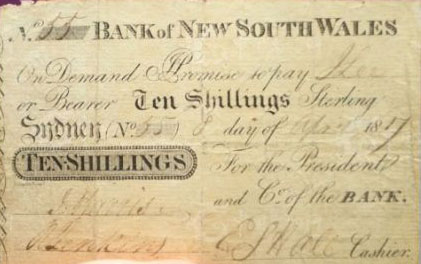 No. 55 BANK of NEW SOUTH WALES
On Demand I Promise to pay
or Bearer Ten Shillings Sterling
Sydney (No. 55) 8 day of April 1817
TEN-SHILLINGS For the President
and Co. of the BANK.
E S Hall Cashier.